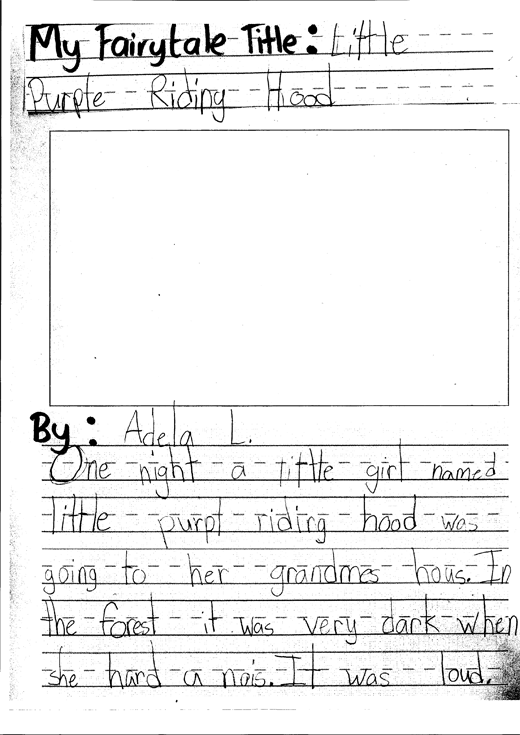 My Fairytale Title: Little
Purple Riding Hood
By: Adela L.
One night a little girl named
little purpl riding hood was
going to her grandmes hous. In
the forest it was very dark when
she hard a nais. It was loud.